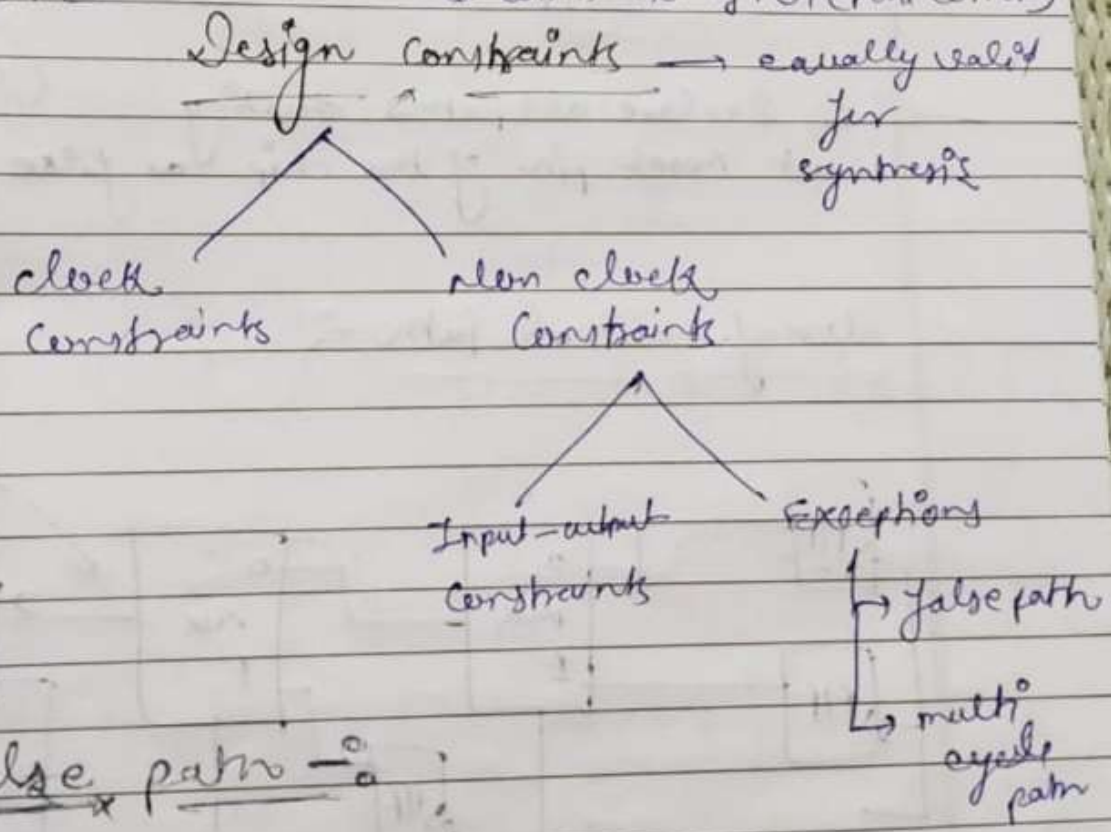 Design Constraints → equally valid
for
synthesis
clock
Constraints
Non clock
Constraints
Input-output
Constraints
Exceptions
→ false path
→ multi
cycle
path
lse path -: